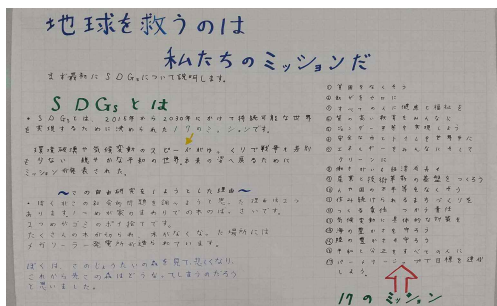 地球を救うのは
私たちのミッションだ
まず最初にSDGsについて説明します。
SDGsとは
・SDGsとは、2016年から2030年にかけて持続可能な世界
を実現するために決められた17のミッションです。
環境破壊や気候変動のスピードが
ミッションが発表された。
〜この自由研究をしようとした理由〜
あります。1つめが家のまわりでの
2つめがゴミのポイ捨てです。
たくさんの木が切られ、木がなくなった場所には
メガソーラー発電所が造られています。
ぼくは、この森を見て、悲しくなり、
これから先この森はどうなってしまうのだろう
と思いました。
①貧困をなくそう
②飢餓をゼロに
③すべての人に健康と福祉を
④質の高い教育をみんなに
⑤ジェンダー平等を実現しよう
⑥安全な水とトイレを世界中に
⑦エネルギーをみんなにそして
クリーンに
⑧働きがいも経済成長も
⑨産業と技術革新の基盤をつくろう
⑩人や国の不平等をなくそう
⑪住み続けられるまちづくりを
⑫つくる責任 つかう責任
⑬気候変動に具体的な対策を
⑭海の豊かさを守ろう
⑮陸の豊かさも守ろう
⑯平和と公正をすべての人に
⑰パートナーシップで目標を達成
しよう。
17のミッション